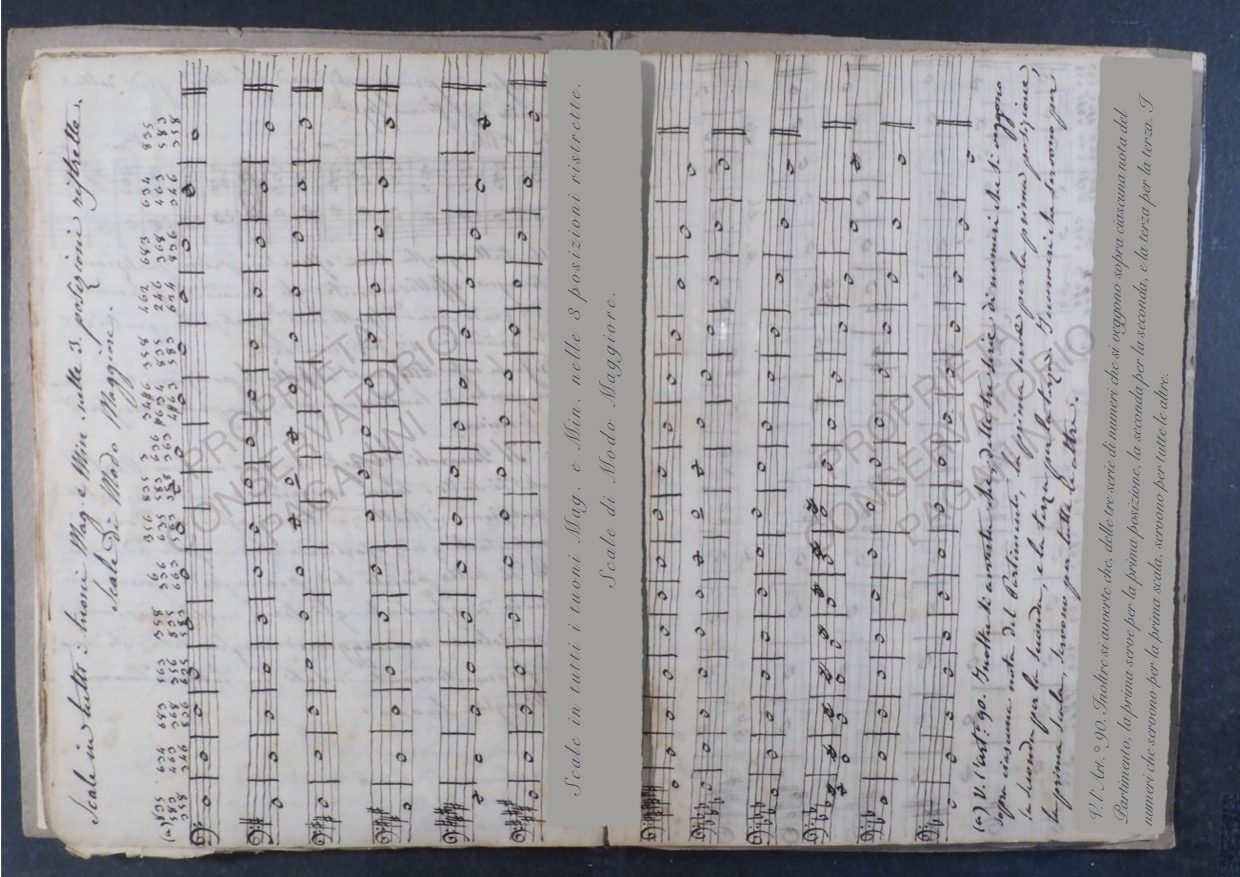 Scale in tutti i tuoni Mag. e Min. nelle 3. posizioni ristrette.
Scale di Modo Maggiore.
(a) 835 634 683 563 358 6 356 835 3 34#6 358 462 683 634 835
583 463 368 356 835 336 635 583 636 #463 835 246 368 463 583
358 346 836 635 583 663 563 358 363 4#63 583 624 836 346 358
PROPRIETÀ
CONSERVATORIO
PAGANINI
Scale in tutti i tuoni Mag. e Min. nelle 3 posizioni ristrette.
Scale di Modo Maggiore.
PROPRIETÀ
CONSERVATORIO
PAGANINI
(a) V. l'Art.° 90. Inoltre si avverte che, delle tre serie di numeri che si veggono
sopra ciascuna nota del Partimento, la prima serve per la prima posizione,
la seconda per la seconda, e la terza per la terza. I numeri che servono per
la prima scala, servono per tutte le altre.
V. l'Art.° 90. Inoltre si avverte che, delle tre serie di numeri che si veggono sopra ciascuna nota del
Partimento, la prima serve per la prima posizione, la seconda per la seconda, e la terza per la terza. I
numeri che servono per la prima scala, servono per tutte le altre.